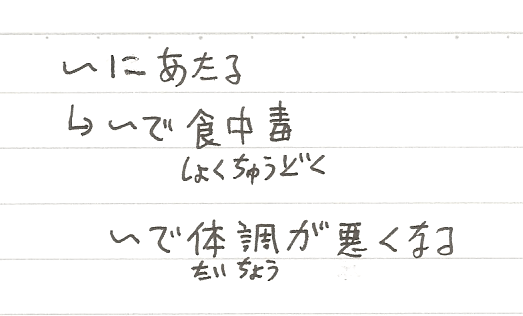 〜にあたる
↳ 〜で食中毒
しょくちゅうどく
〜で体調が悪くなる
たいちょう